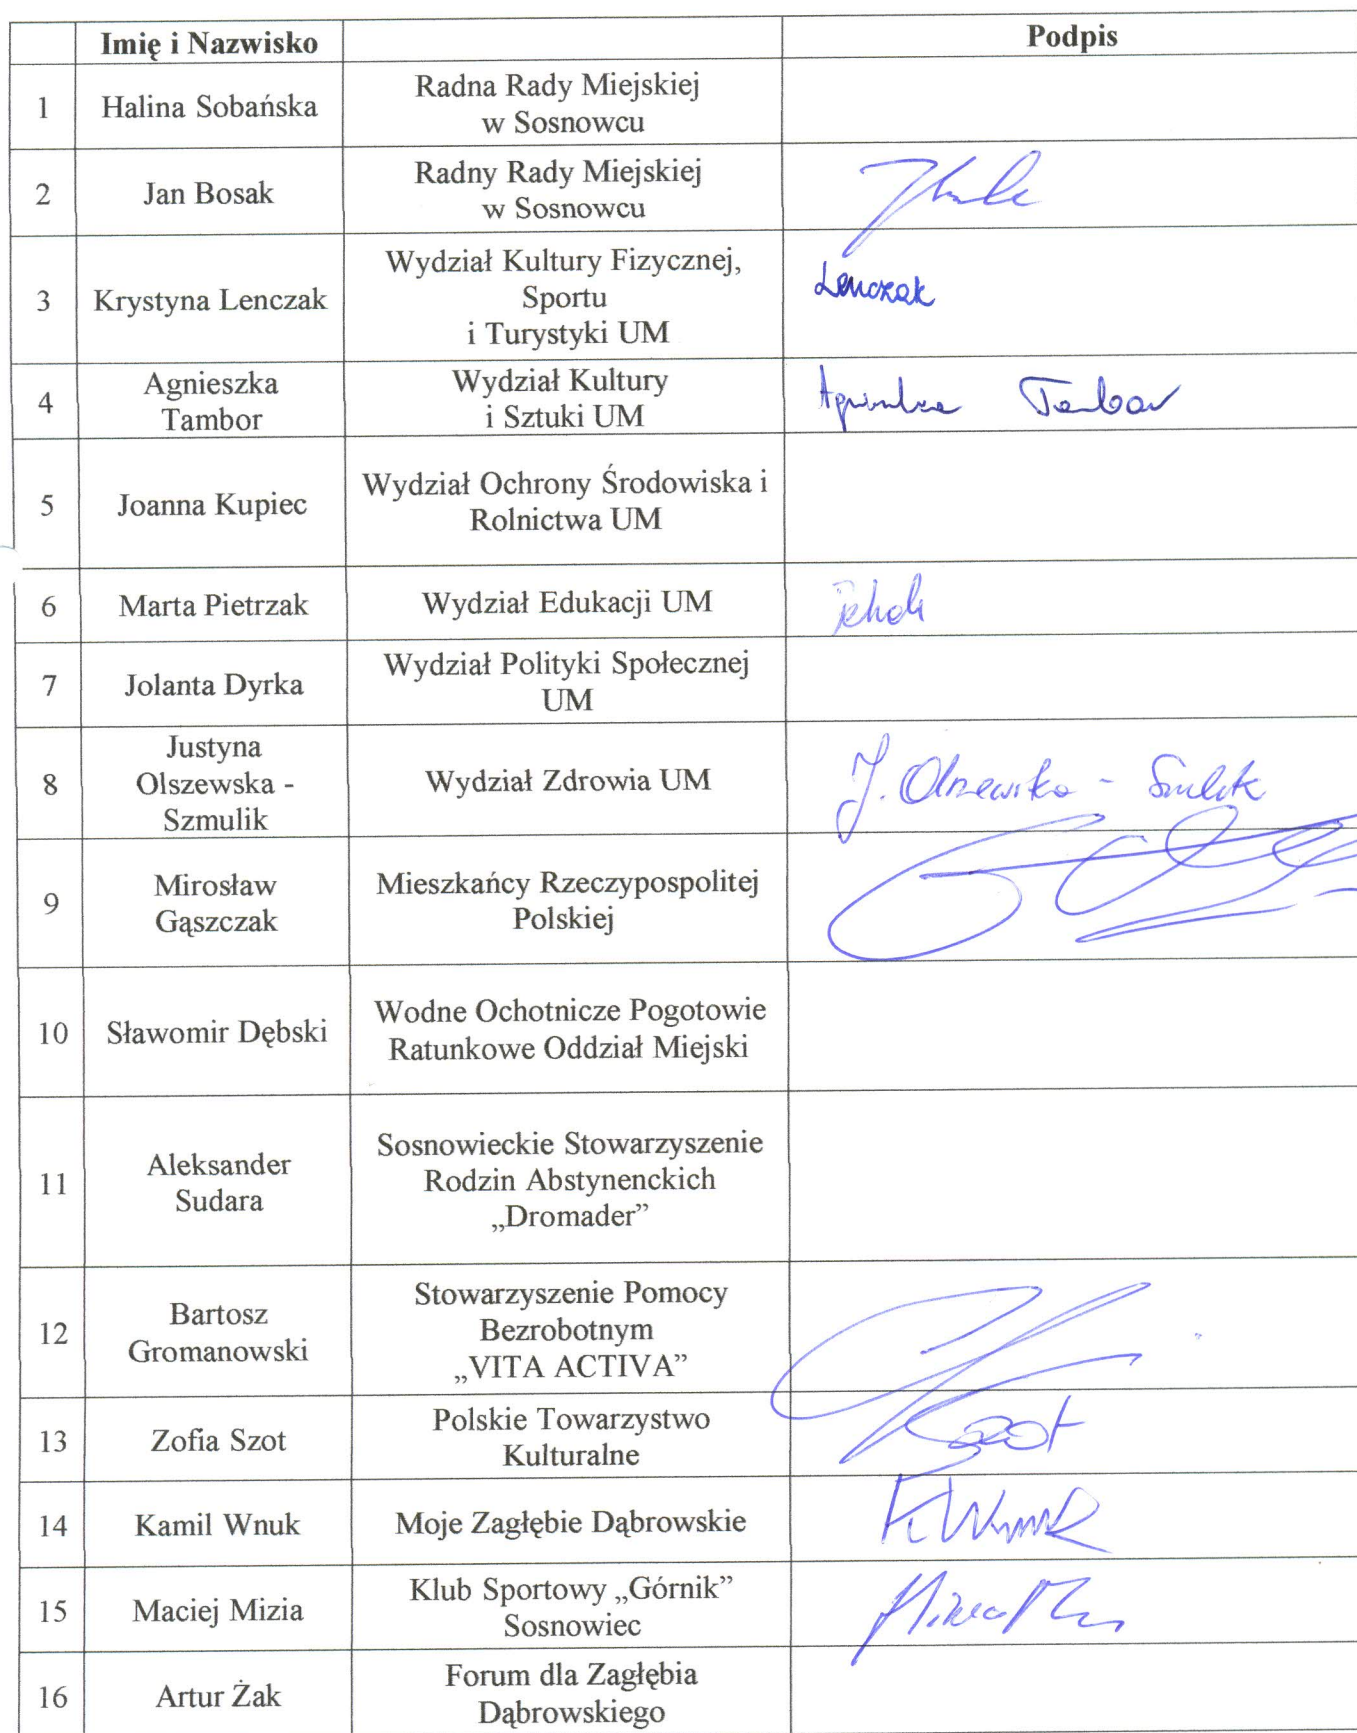 Imię i Nazwisko Podpis
1 Halina Sobańska Radna Rady Miejskiej
w Sosnowcu
2 Jan Bosak Radny Rady Miejskiej
w Sosnowcu
3 Krystyna Lenczak Wydział Kultury Fizycznej,
Sportu
i Turystyki UM
Lenczak
4 Agnieszka
Tambor
Wydział Kultury
i Sztuki UM
Agnieszka Tambor
5 Joanna Kupiec Wydział Ochrony Środowiska i
Rolnictwa UM
6 Marta Pietrzak Wydział Edukacji UM
7 Jolanta Dyrka Wydział Polityki Społecznej
UM
8 Justyna
Olszewska -
Szmulik
Wydział Zdrowia UM
J. Olszewska - Szmulik
9 Mirosław
Gąszczak
Mieszkańcy Rzeczypospolitej
Polskiej
10 Sławomir Dębski Wodne Ochotnicze Pogotowie
Ratunkowe Oddział Miejski
11 Aleksander
Sudara
Sosnowieckie Stowarzyszenie
Rodzin Abstynenckich
„Dromader”
12 Bartosz
Gromanowski
Stowarzyszenie Pomocy
Bezrobotnym
„VITA ACTIVA”
13 Zofia Szot Polskie Towarzystwo
Kulturalne
Szot
14 Kamil Wnuk Moje Zagłębie Dąbrowskie
K Wnuk
15 Maciej Mizia Klub Sportowy „Górnik”
Sosnowiec
16 Artur Żak Forum dla Zagłębia
Dąbrowskiego